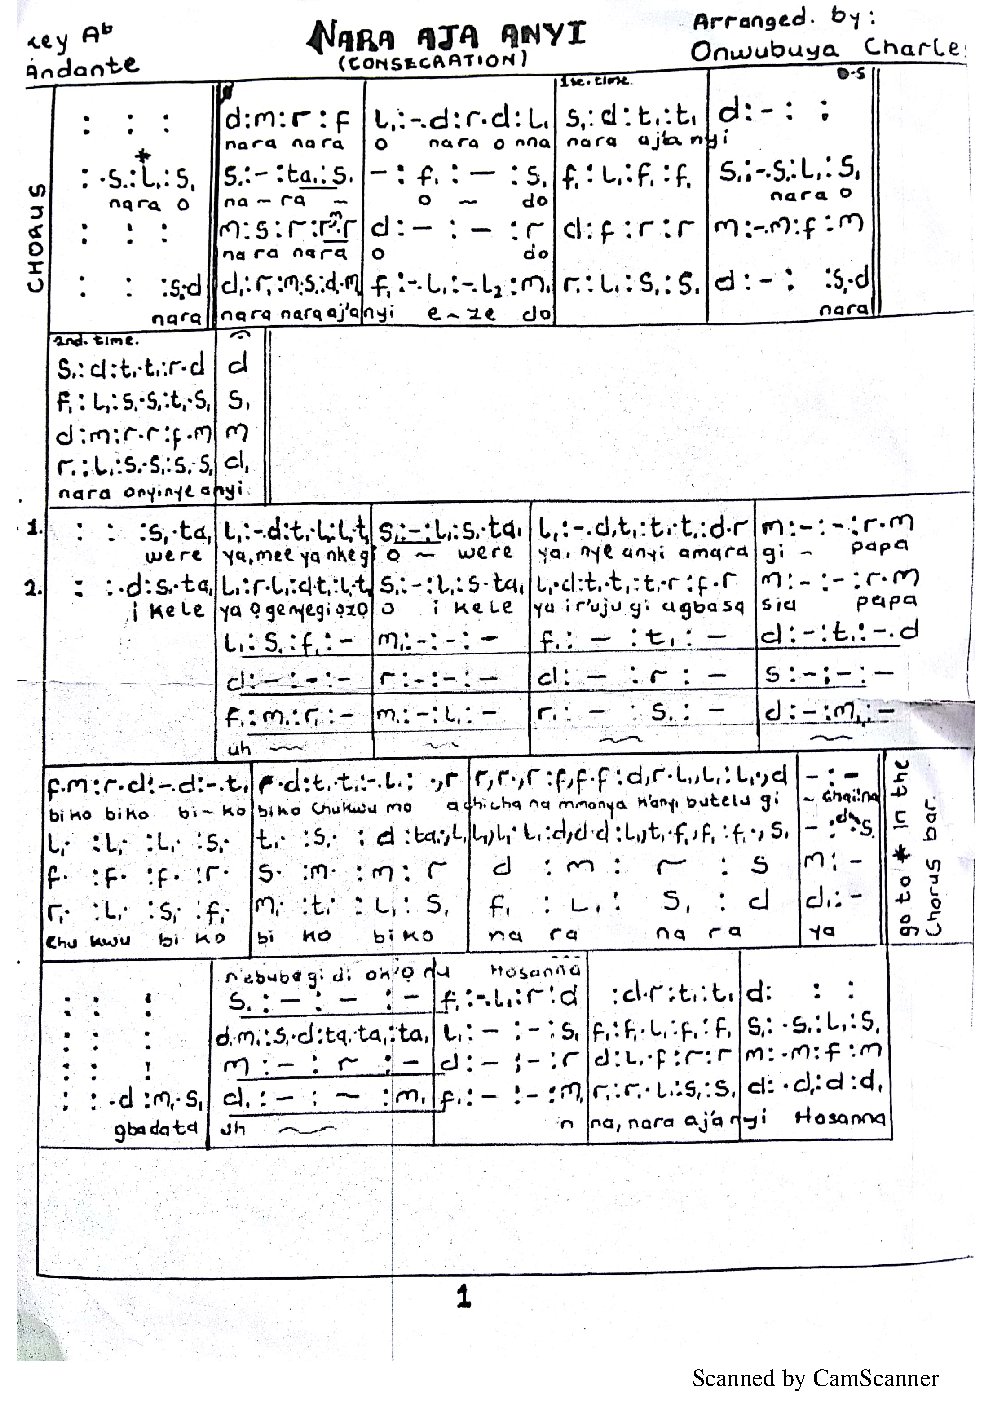 Key Ab
Andante
NARA AJA ANYI
(CONSECRATION)
Arranged. by:
Onwubuya Charle
CHORUS
1st. time.
D.S
: : : d:m:r:f l,:-.d:r.d:l, s,:d:t,:t, d:-: :
nara nara o nara o nna nara aja nyi
*
: .s,:l,:s, s,:-:ta,:s, -:f,:-:s, f,:l,:f,:f, s,:-.s,:l,:s,
nara o na-ra - o - do nara o
: : : m:s:r:r.r d:-:-:r d:f:r:r m:-.m:f:m
nara nara o do
: : :s,.d d,:r,:m,.s,:d.m, f,:-.l,:-.l2:m, r,:l,:s,:s, d:-: :s,.d
nara nara nara aj'a nyi e-ze do nara
2nd. time.
s,:d:t,.t,:r.d d
f,:l,:s,.s,:t,.s, s,
d:m:r.r:f.m m
r,:l,:s,.s,:s,.s, d,
nara onyinye anyi
1. : : :s,.ta, l,:-.d:t,.l,:l,.t, s,:-:l,:s,.ta, l,:-.d,t,:t,.t,:d.r m:-:-:r.m
were ya, mee ya nkegi o ~ were ya, nye anyi amara gi - papa
2. : :.d:s,.ta, l,:r.l,:d.t,:l,.t, s,:-:l,:s,.ta, l,.d:t,.t,:t,.r:f.r m:-:-:r.m
i kele ya ogenyegi ozo o i kele ya ir'uju gi agbasa sia papa
l,:s,:f,:- m,:-:-:- f,:-:t,:- d:-:t,:-.d
d:-:-:- r:-:-:- d:-:r:- s:-:-:-
f,:m,:r,:- m,:-:l,:- r,:-:s,:- d:-:m,:-
uh
f.m:r.d:-.d:-.t, r.d:t,.t,:-.l,: .,r r,r.,r:f,f.f:d,r.l,,l,:l,.,d -:-
biko biko bi-ko biko chukwu mo achicha na mmanya k'anyi butelu gi
l,. :l,. :l,. :s,. t,. :s,. :d :ta,.,l, l,,l,.l,:d,d.d:l,,t,.f,,f,:f,.,s, -:d.s,
f. :f. :f. :r. s. :m. :m:r d:m:r:s m:-
r,. :l,. :s,. :f,. m,. :t,. :l,:s, f,:l,:s,:d d,:-
chu kwu bi ko bi ko biko na ra na ra ya
go to * in the
Chorus bar.
n'ebube gi di ok'o nu Hosanna
: : : s,:-:-:- f,:-.l,:r:d :d.r:t,:t, d: : :
: : : d.m,:s,.d:ta,.ta,:ta, l,:-:-:s, f,:f,.l,:f,:f, s,:.s,:l,:s,
: : : m:-:r:- d:-:-:r d:l,.f:r:r m:.m:f:m
: :.d:m,.s, d,:-:-:m, f,:-:-:m, r,:r,.l,:s,:s, d:.d,:d:d,
gbadata uh n na, nara aj'a nyi Hosanna
1
Scanned by CamScanner